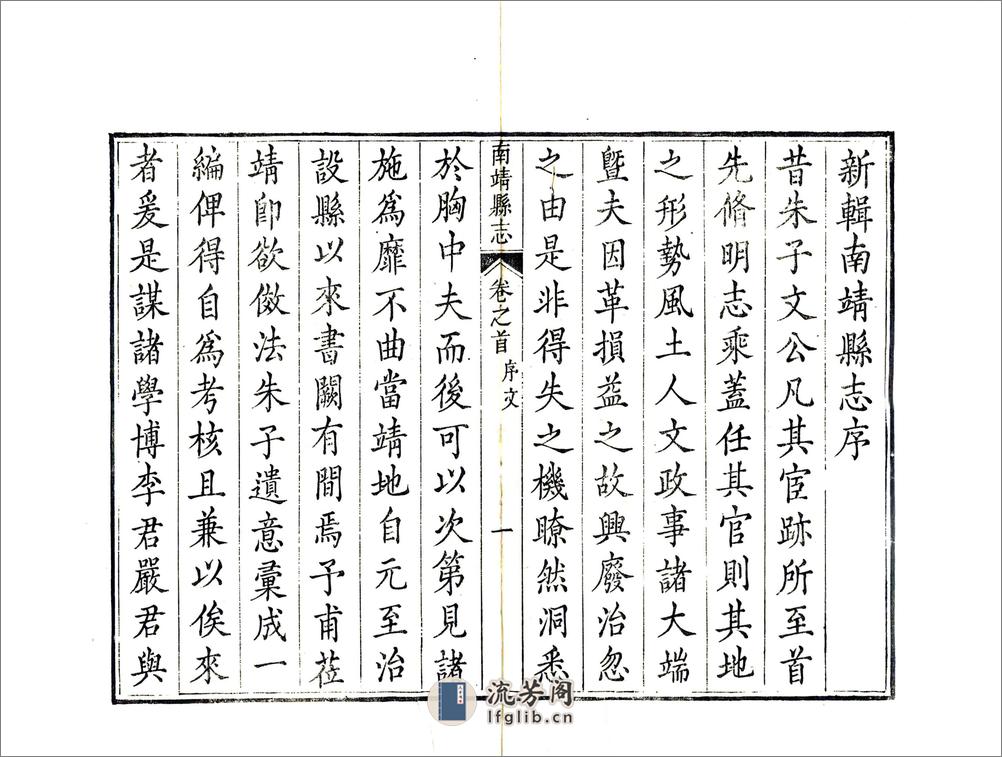 新輯南靖縣志序
昔朱子文公凡其宦跡所至首
先脩明志乘蓋任其官則其地
之形勢風土人文政事諸大端
曁夫因革損益之故興廢治忽
之由是非得失之機暸然洞悉
南靖縣志 卷之首 序文 一
於胸中夫而後可以次第見諸
施爲靡不曲當靖地自元至治
設縣以來書闕有間焉予甫莅
靖卽欲倣法朱子遺意彙成一
編俾得自爲考核且兼以俟來
者爰是謀諸學博李君嚴君與
流芳阁
lfglib.cn